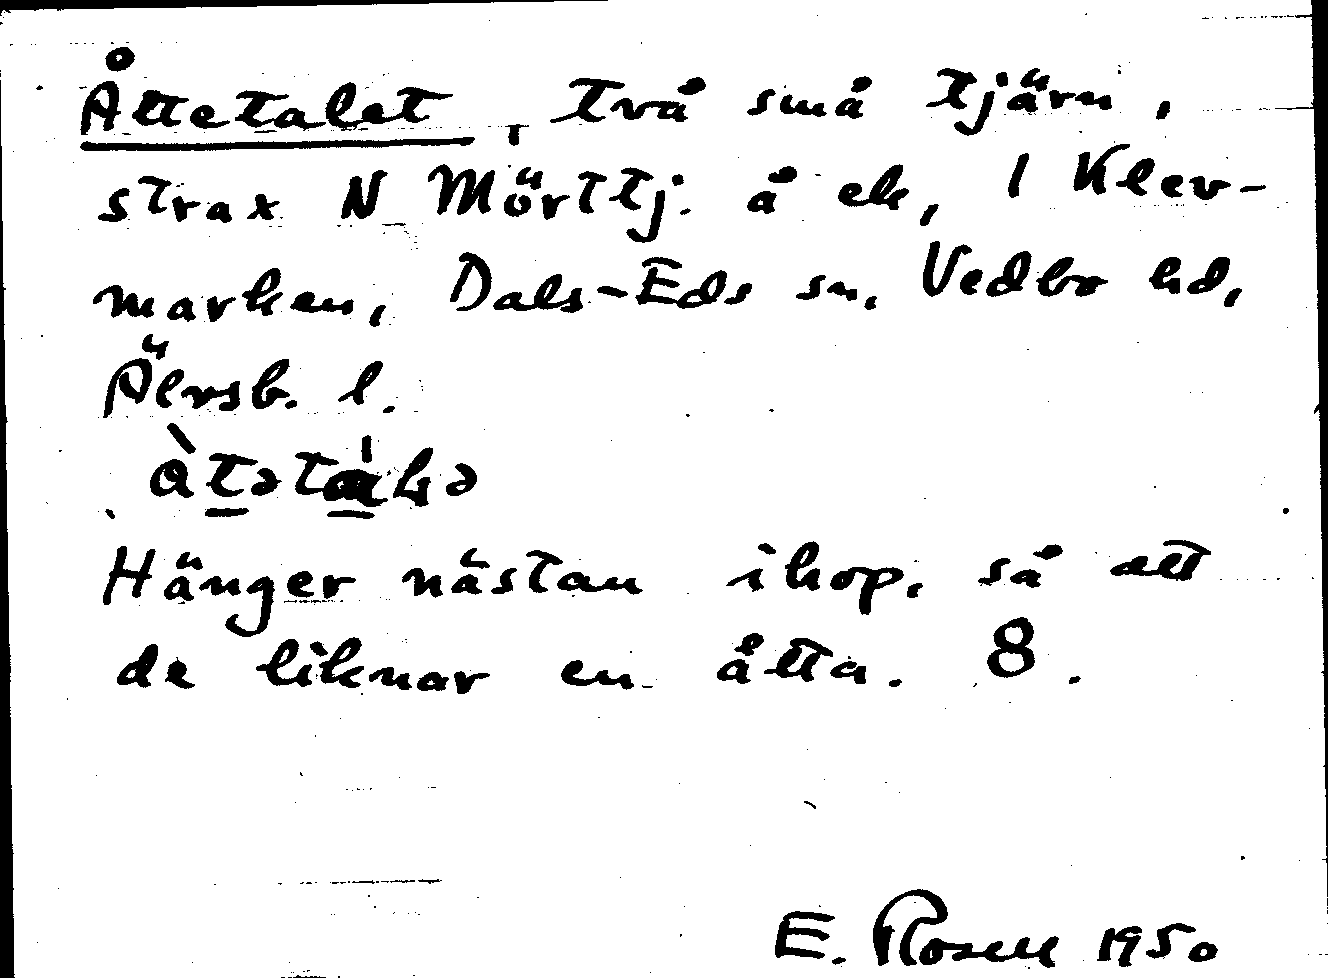 Åttetalet, två små tjärn,
strax N Mörttj. å ek, 1 Klev-
marken, Dals-Eds sn, Vedbo hd,
Älvsb. l.
Hänger nästan ihop, så att
de liknar en åtta. 8.
E. Rosell 1950